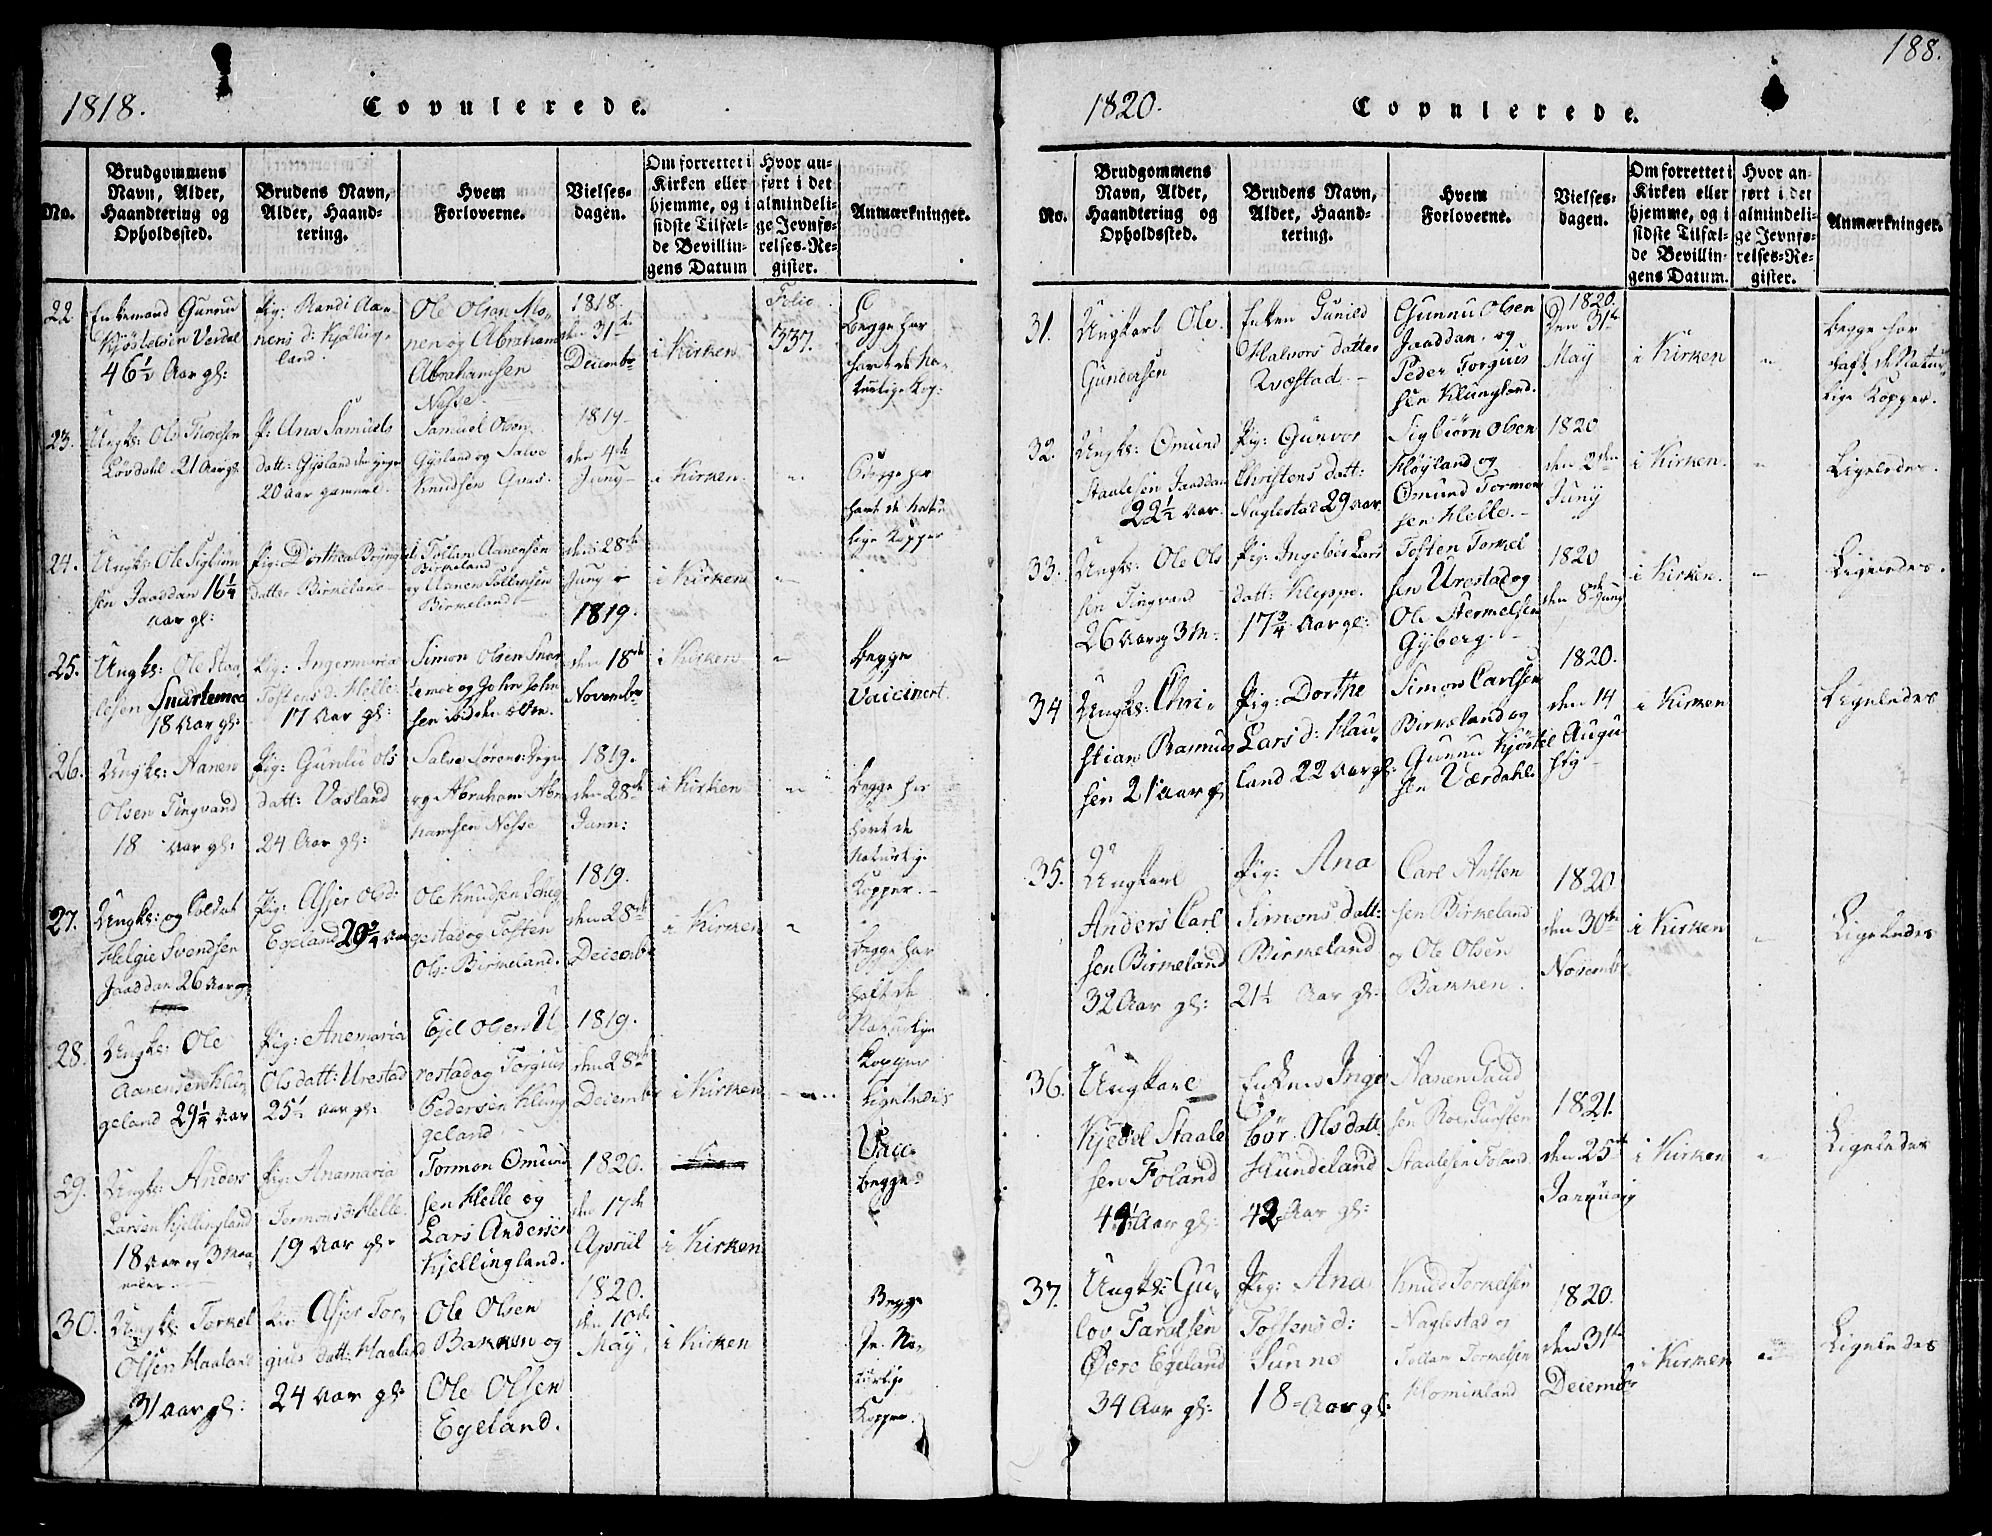 188.
1818. Copulerede.
No.
Brudgommens
Navn, Alder,
Haandtering og
Opholdssted.
Brudens Navn,
Alder, Haand-
tering.
Hvem
Forloverne.
Vielses-
dagen.
Om forrettet i
Kirken eller
hjemme, og i
sidste Tilfæl-
de Bevillin-
gens Datum
Hvor an-
ført i det
almindeli-
ge Jevnfø-
relses-Re-
gister.
Anmærkninger.
22
Enkemand Gunnu
Verdal
46½ Aar gl:
Pig: Randi Aa-
nens d: Kjølling-
land.
Ole Olsen Mo-
nen og Abraham
Abrahamsen
Nesse
1818.
den 31te
Decembr
i Kirken
Folio
337.
Begge har
havt de na-
turlige Kop:
23.
Ungk: Ole Thoresen
Løvdahl 21 Aar gl:
P: Ana Samuels
datt: Gysland
20 aar gammel
Samuel Olsen
Gysland og Salve
Knudsen Gvas.
1819
den 4de
Juny
i Kirken
"
Begge har
havt de natur
lige Kopper
24.
Ungk: Ole Sigbiørn
sen Jaaddan 16¼
Aar gl:
Pig: Dorthea Bryngels
datter Birkeland
Tollan Aanensen
Birkeland
og Aanen Tollensen
Birkeland
den 28de
Juny
1819.
i Kirken
"
25.
Ungk: Ole Staa
lesen Snartemoe
18 Aar gl:
Pig: Ingermaria
Tostens d: Helle
17 Aar gl:
Simon Olsen Snar
temoe og John John
sen
den 18de
Novembr
i Kirken
"
Begge
Vaccinert.
26.
Ungk: Aanen
Olsen Tingvand
18 Aar gl:
Pig: Gunild Ols
datt: Vasland
24 Aar gl:
Salve Sørens:
og Abraham Abra
hamsen Nesse
1819.
den 28de
Janu:
i Kirken
"
Begge har
havt de
naturlig
Kopper.
27.
Ungk: og Soldat
Helgie Svendsen
Jaaddan 26 Aar g:
Pig: Assjer Ols d:
Egeland 20¾ Aar
Ole Knudsen Scheg
gestad og Tosten
Ols: Birkeland.
1819.
den 28de
Decembr
i Kirken
"
Begge har
havt de
Naturlige
Kopper
28.
Ungk: Ole
Aanensen Klun
geland 29¼ Aar
Pig: Anemaria
Ols datt: Urestad
25½ Aar gl:
Ejel Olsen U
restad og Torgius
Pedersen Klung
geland
1819.
den 28de
Decembr
i Kirken
"
Ligeledes
29.
Ungk: Anders
Larsen Kjellingland
18 Aar og 3 Maa
neder
Pig: Anamaria
Tormons d: Helle
19 Aar gl:
Tormon Omund
sen Helle og
Lars Andersen
Kjellingland.
1820.
den 17de
Apriil
i Kirken
Vacc.
Begge
30.
Ungk: Torkel
Olsen Haaland
31 aar gl:
Pig: Assjer Tor-
gius datt: Haaland
24 Aar gl:
Ole Olsen
Bakken og
Ole Olsen
Egeland.
1820.
den 10de
May
i Kirken
Begge
Na-
turlige
Kopper.
1820. Copulerede.
No.
Brudgommens
Navn, Alder,
Haandtering og
Opholdssted.
Brudens Navn,
Alder, Haand-
tering.
Hvem
Forloverne.
Vielses-
dagen.
Om forrettet i
Kirken eller
hjemme, og i
sidste Tilfæl-
de Bevillin-
gens Datum.
Hvor an-
ført i det
almindeli-
ge Jevnfø-
relses-Re-
gister.
Anmærkninger.
31.
Ungkarl Ole
Gundersen
Enken Gunild
Halvors datter
Qvæstad
Gunnu Olsen
Jaaddan, og
Peder Torgius
sen Klungland.
1820.
Den 31te
May
i Kirken
"
Begge har
havt de Natur
lige Kopper.
32.
Ungk: Omund
Staalesen Jaaddan
22½ Aar.
Pig: Gunvor
Christens datt:
Naglestad 29 Aar
Sigbiørn Olsen
Høyland og
Omund Tormon
sen Helle.
1820
den 2den
Juny
i Kirken.
"
Ligeledes.
33.
Ungk: Ole Ols
sen Tingvand
26 Aar og 3 M:
Pig: Ingebor Lars
datt: Kleppe.
17¾ Aar gl:
Tosten Torkel
sen Urestad og
Ole Stermelsen
Gyberg.
1820
den 8de Juny
i Kirken.
"
Ligeledes.
34
Ungk: Chri-
stian Rasmus
sen 21 Aar gl
Pig: Dorthe
Lars d: Hau-
land 22 Aar gl:
Simon Carlsen
Birkeland og
Gunnu Kjøstel
sen Værdahl.
1820.
den 14
Augu
sty
i Kirken
Ligeledes
35.
Ungkarl
Anders Carl
sen Birkeland
32 Aar gl:
Pig: Ana
Simons datt:
Birkeland
21½ Aar gl:
Carl Ansten
sen Birkeland
og Ole Olsen
Bakken.
1820
den 30te
Novembr
i Kirken
"
Ligeledes
36.
Ungkarl
Kjedel Staale
sen Foland
44 Aar gl:
Enken Inge
bør Ols datt:
Hundeland
42 Aar gl:
Aanen Gund
sen Roe, Gursten
Staalesen Foland
1821.
den 25de
Januarij
i Kirken
"
Ligeledes
37.
Ungk: Gu-
lov Taralsen
Øvre Egeland
34 Aar gl:
Pig: Ana
Tostens d:
Sunne
18 Aar gl:
Knud Torkelsen
Naglestad og
Tollam Torkelsen
Homikland
1820.
den 31te
Decembr
i Kirken
"
Ligeledes